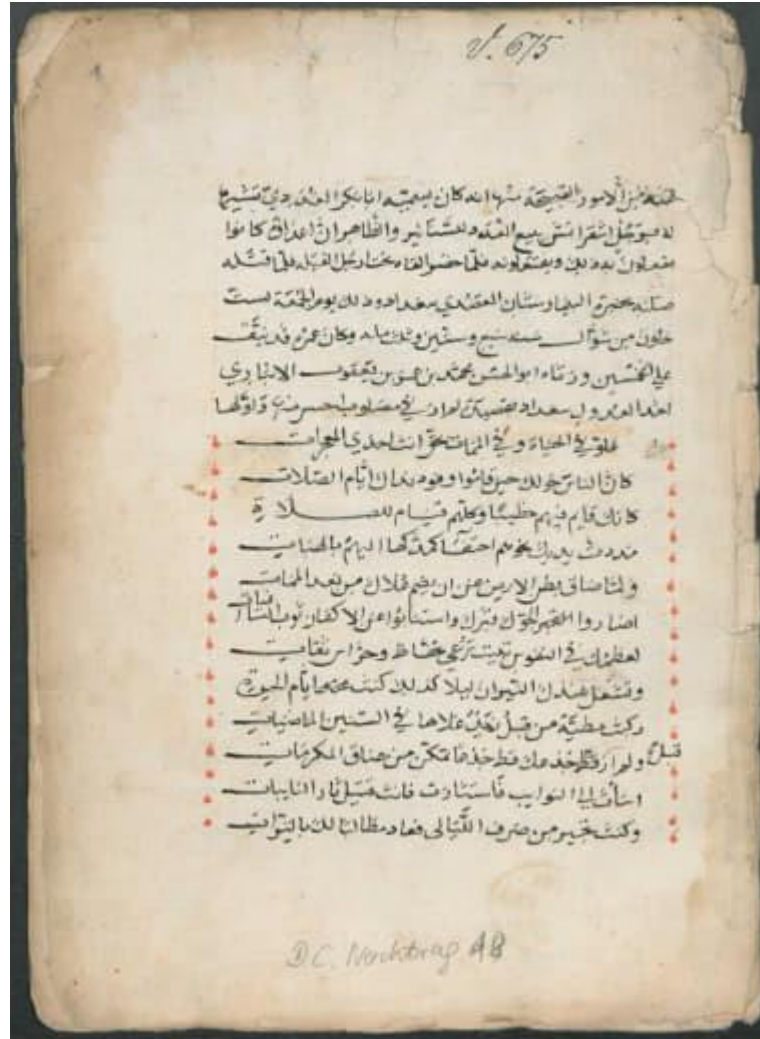 من الامور القبيحة منها انه كان يسميه ابا بكر الغددي تشبيها
له برجل اشقر انمش يبيع الغدد للسنانير والظاهر ان اعداه كانوا
يفعلون به ذلك ويفتعلونه فلما حضر القاه تحت ارجل الفيله فلما قتله
صلبه بحضرة البيمارستان العضدي ببغداد وذلك يوم الجمعة لست
خلون من شوال سنه سبع وستين وثلث مايه وكان عمره قد نيف
على الخمسين ورثاه ابو الحسن محمد بن يعقوب الانباري
احد العدول ببغداد بقصيدة لم ار في مصلوب احسن منها واولها
علو في الحياة وفي الممات بحق انت احدي المعجزات
كان الناس حولك حين قاموا وفود نداك ايام الصلات
كانك قايم فيهم خطيبا وكلهم قيام للصلاة
مددت يديك نحوهم احتفا كمدكها اليهم بالهبات
ولما ضاق بطن الارض عن ان يضم علاك من بعد الممات
اصاروا الجو قبرك واستنابوا عن الاكفان ثوب السافيات
لعظمك في النفوس تبيت ترعي بحفاظ وحراس ثقات
وتشعل عندك النيران ليلا كذلك كنت ايام الحيوة
ركبت مطية من قبل زيد علاها في السنين الماضيات
ولم ار قبل جذعك قط جذعا تمكن من عناق المكرمات
اسأت الى النوايب فاستثارت فانت قتيل ثار النايبات
وكنت تجير من صرف الليالى فعاد مطالبا لك بالترات
قبل
D.C. Nachtrag 48